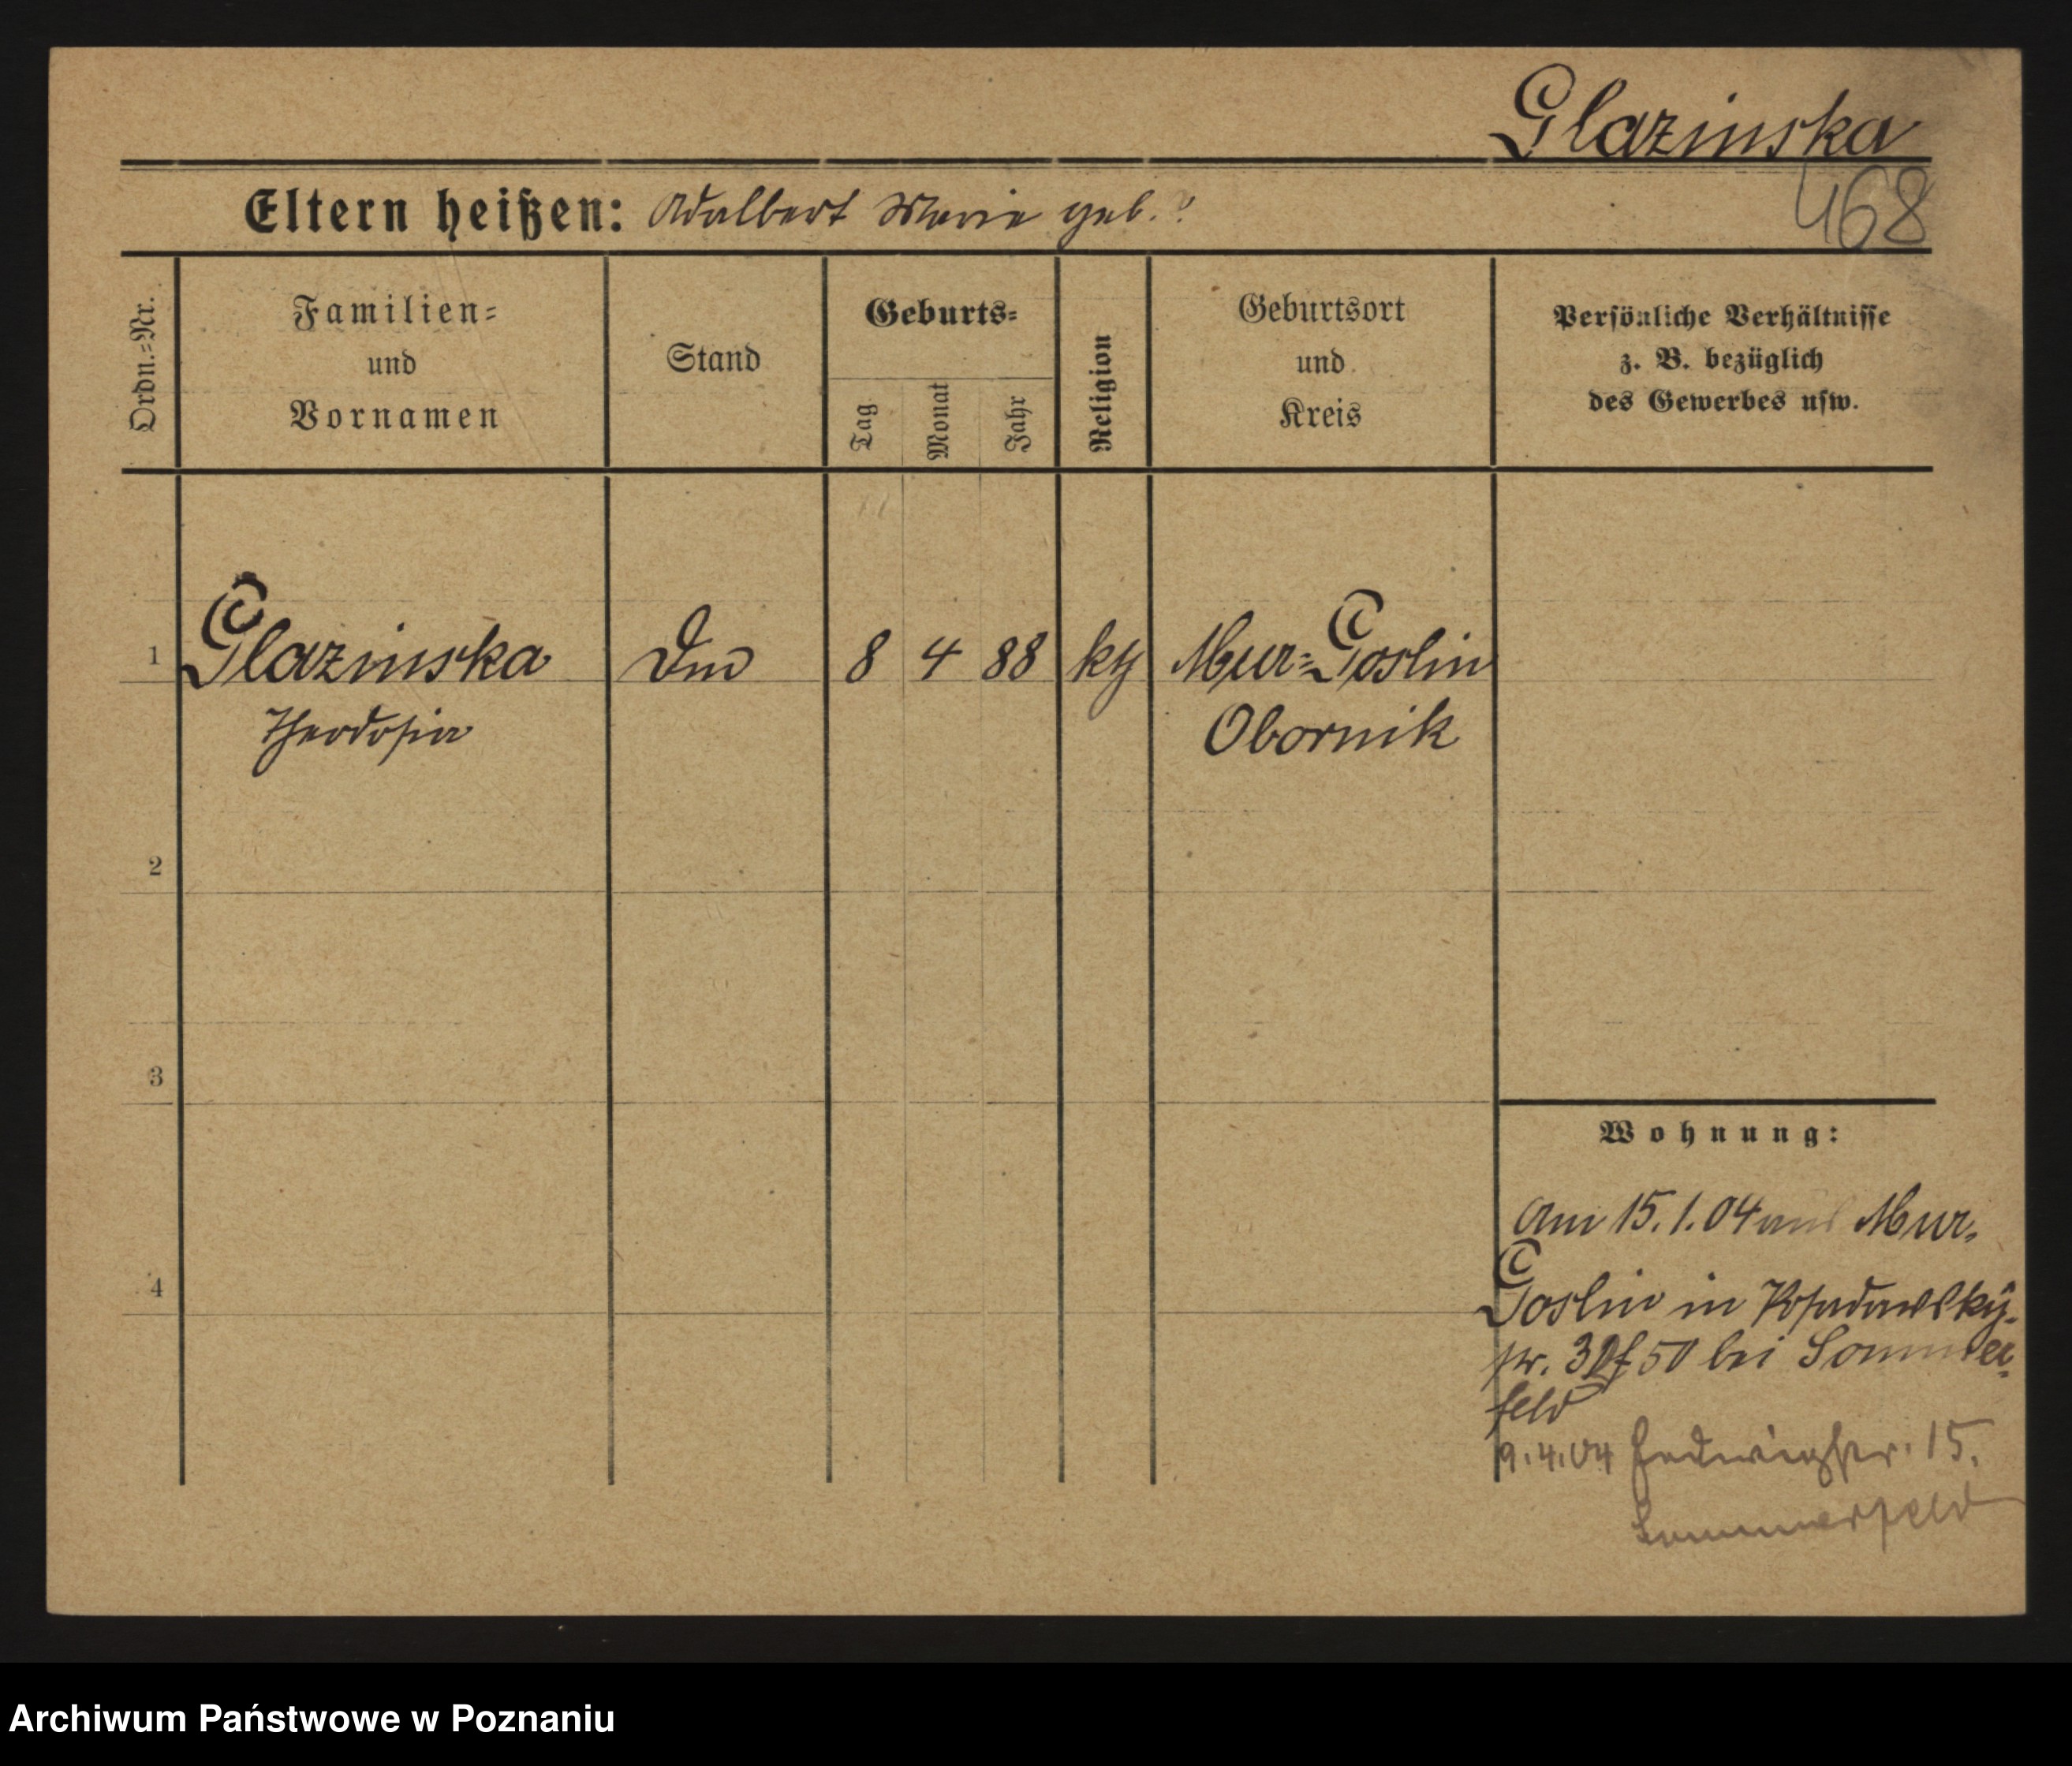 Glazinska
468
Eltern heißen: Adalbert Marie geb. ?
Ordn.-Nr.
Familien- und Vornamen
Stand
Geburts-
Tag
Monat
Jahr
Religion
Geburtsort und Kreis
Persönliche Verhältnisse
z. B. bezüglich
des Gewerbes usw.
1 Glazinska 8 4 88 kth Mur-Goslin
Theodosia Obornik
2
3
4
Wohnung:
Am 15.1.04 aus Mur.
Goslin in Posadowsky-
str. 50 bei Sommer-
feld
9.4.04 Hedwigstr. 15.
Sommerfeld
Archiwum Państwowe w Poznaniu